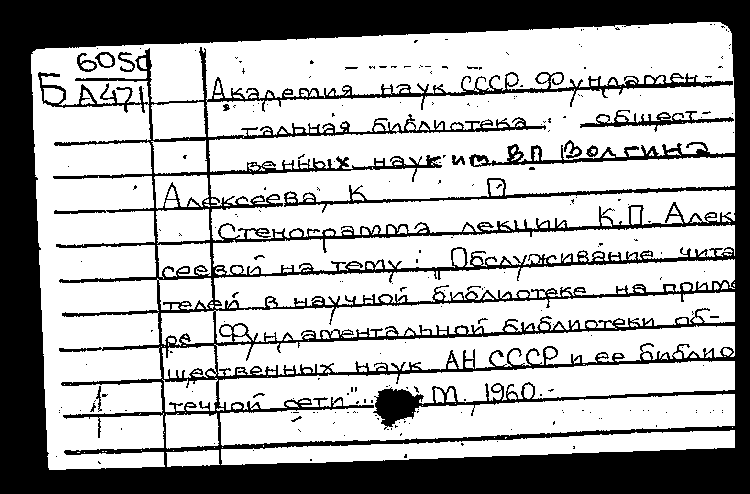 6050
Б А471
Академия наук СССР. Фундамен-
тальная библиотека общест-
венных наук им. В.П. Волгина
Алексеева, К П
Стенограмма лекции К.П. Алек
сеевой на тему: „Обслуживание чита
телей в научной библиотеке на приме
ре Фундаментальной библиотеки об-
щественных наук АН СССР и ее библио
течной сети". М. 1960.-